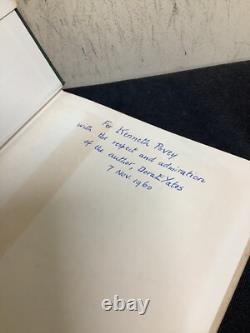 For Kenneth Povey
with the respect and admiration
of the author, Dora E Yates
7 Nov. 1960
ebay